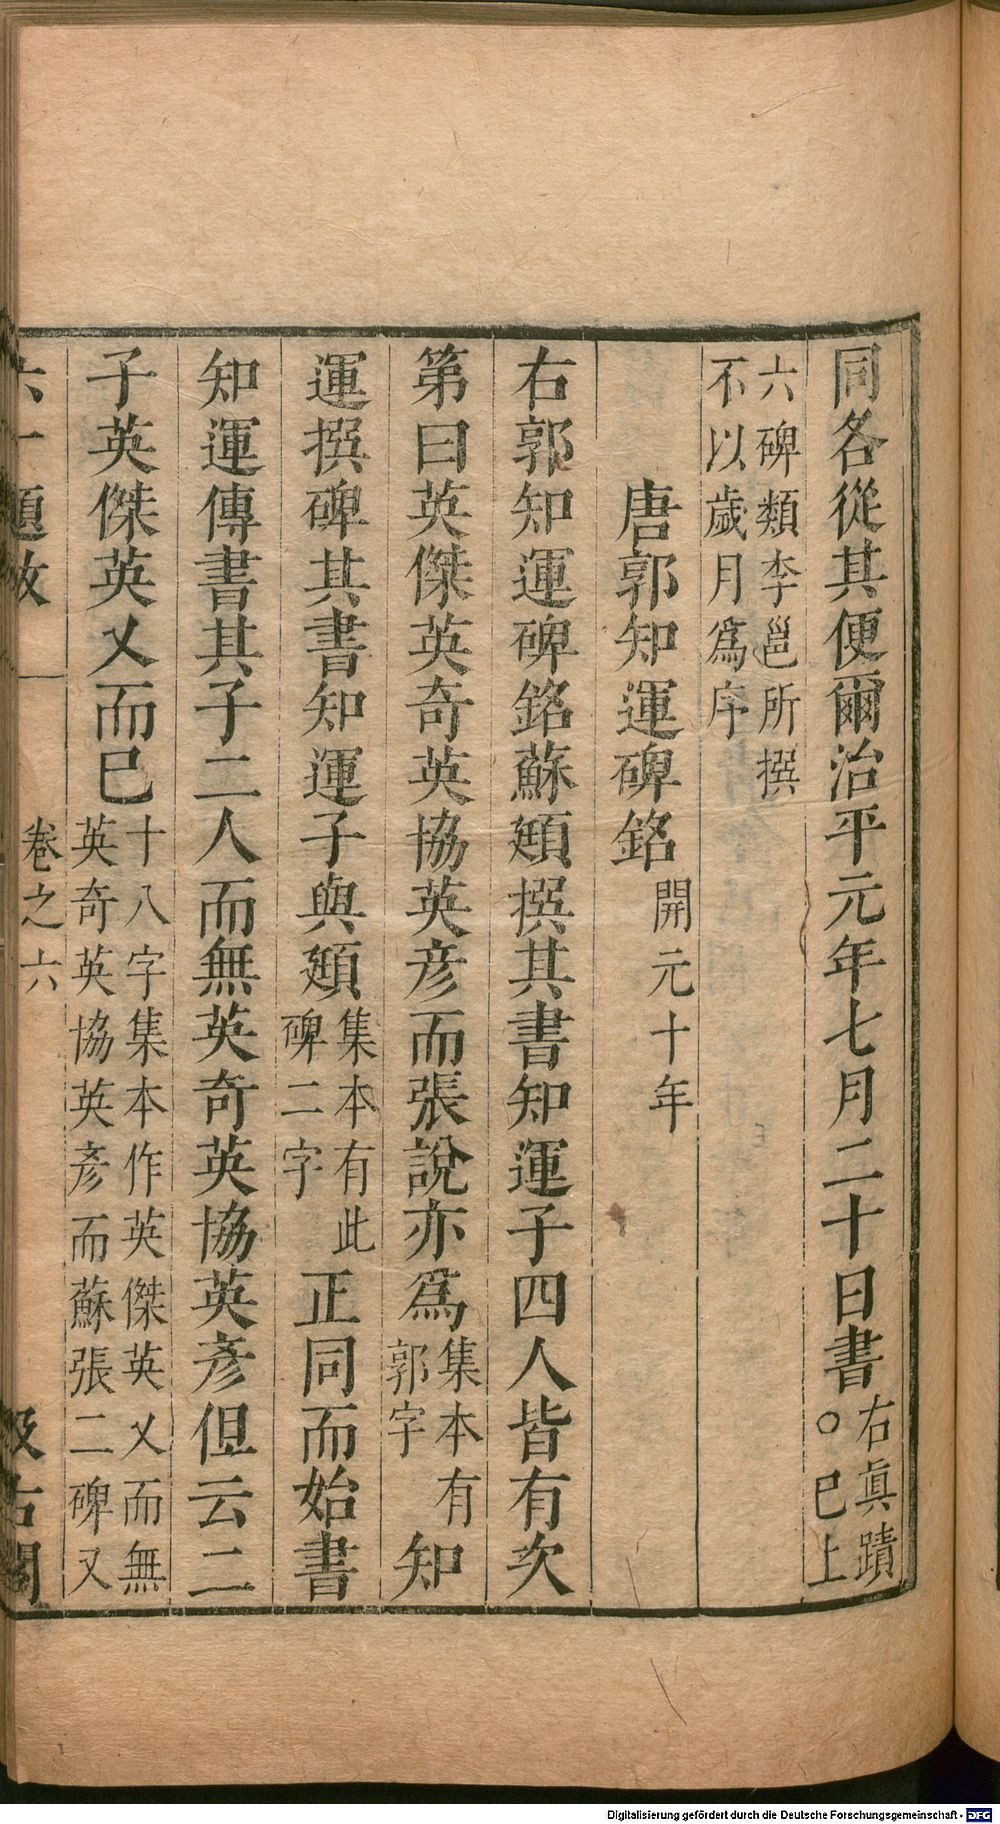 同各從其便爾治平元年七月二十日書右真蹟○已上
六碑類李邕所撰
不以歲月爲序
唐郭知運碑銘開元十年
右郭知運碑銘蘇頲撰其書知運子四人皆有次
第曰英傑英奇英協英彦而張說亦爲集本有郭字知
運撰碑其書知運子與頲集本有此碑二字正同而始書
知運傳書其子二人而無英奇英協英彦但云二
子英傑英乂而已十八字集本作英傑英乂而無英奇英協英彦而蘇張二碑又
六一題跋
卷之六
汲古閣
Digitalisierung gefördert durch die Deutsche Forschungsgemeinschaft - DFG